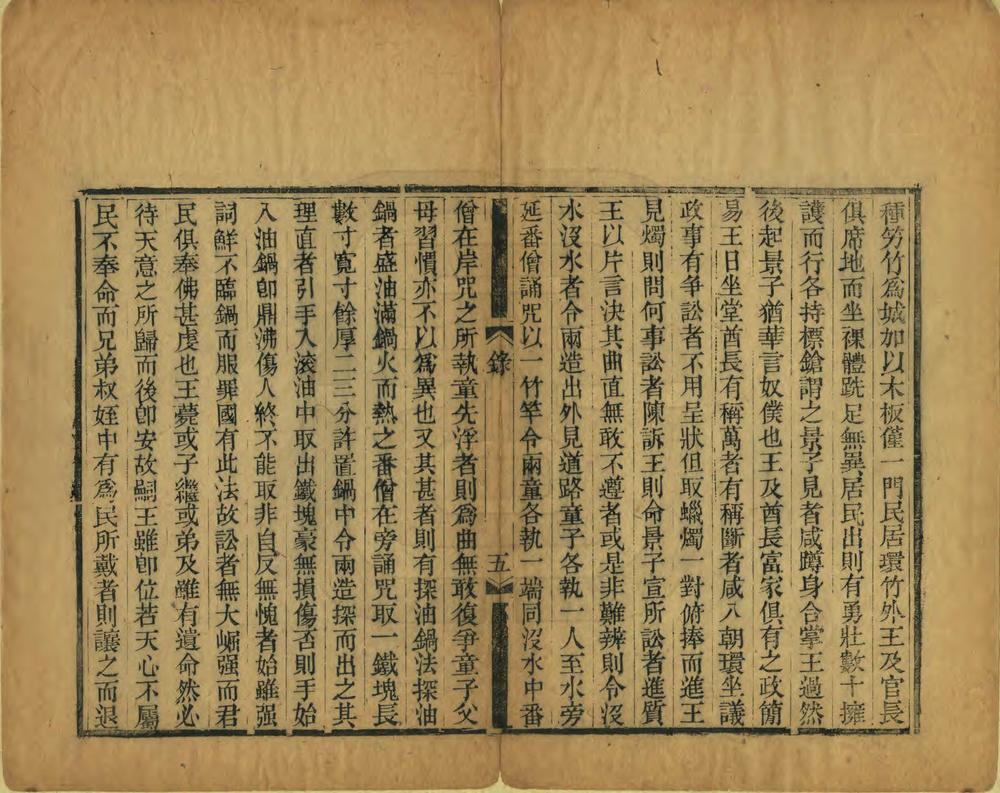 種竻竹為城加以木板僅一門民居環竹外王及官長
俱席地而坐裸體跣足無異居民出則有勇壯數十擁
護而行各持標鎗謂之景子見者咸蹲身合掌王過然
後起景子猶華言奴僕也王及酋長富家俱有之政簡
易王日坐堂酋長有稱萬者有稱斷者咸入朝環坐議
政事有爭訟者不用呈狀但取蠟燭一對俯捧而進王
見燭則問何事訟者陳訴王則命景子宣所訟者進質
王以片言決其曲直無敢不遵者或是非難辨則令沒
水沒水者令兩造出外見道路童子各執一人至水旁
延番僧誦咒以一竹竿令兩童各執一端同沒水中番
錄 五
僧在岸咒之所執童先浮者則為曲無敢復爭童子父
母習慣亦不以為異也又其甚者則有探油鍋法探油
鍋者盛油滿鍋火而熱之番僧在旁誦咒取一鐵塊長
數寸寬寸餘厚二三分許置鍋中令兩造探而出之其
理直者引手入滾油中取出鐵塊豪無損傷否則手始
入油鍋即鼎沸傷人終不能取非自反無愧者始雖强
詞鮮不臨鍋而服罪國有此法故訟者無大崛强而君
民俱奉佛甚虔也王薨或子繼或弟及雖有遺命然必
待天意之所歸而後即安故嗣王雖即位若天心不屬
民不奉命而兄弟叔姪中有為民所戴者則讓之而退